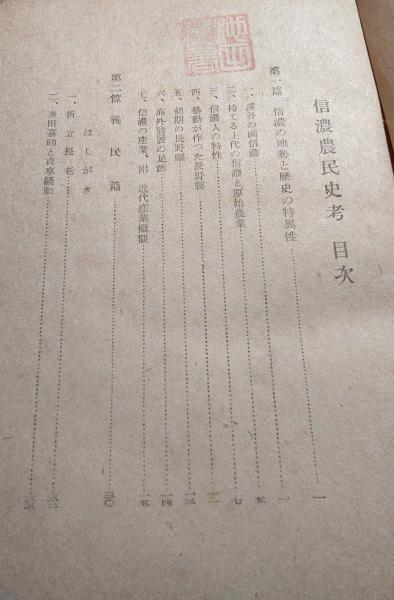 信濃農民史考 目次
第一篇 信濃の地勢と歴史の特異性……一
一、溪谷の國信濃……一
二、持てる上代の信濃と原始農業……五
三、信濃人の特性……七
四、暴動が作つた長野縣……一二
五、初期の長野縣……一三
六、海外發展の足跡……一四
七、信濃の產業、附 近代產業概觀……一五
第二篇 義民篇……三〇
はしがき
一、折立長老……三二
二、多田嘉助と貞享騷動